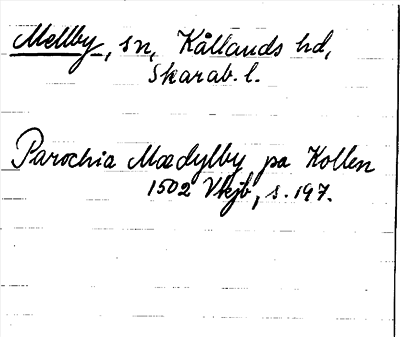 Mellby, sn, Kållands hd,
Skarab. l.
Parochia Mædylby pa Kollen
1502 Vkjb, s. 197.